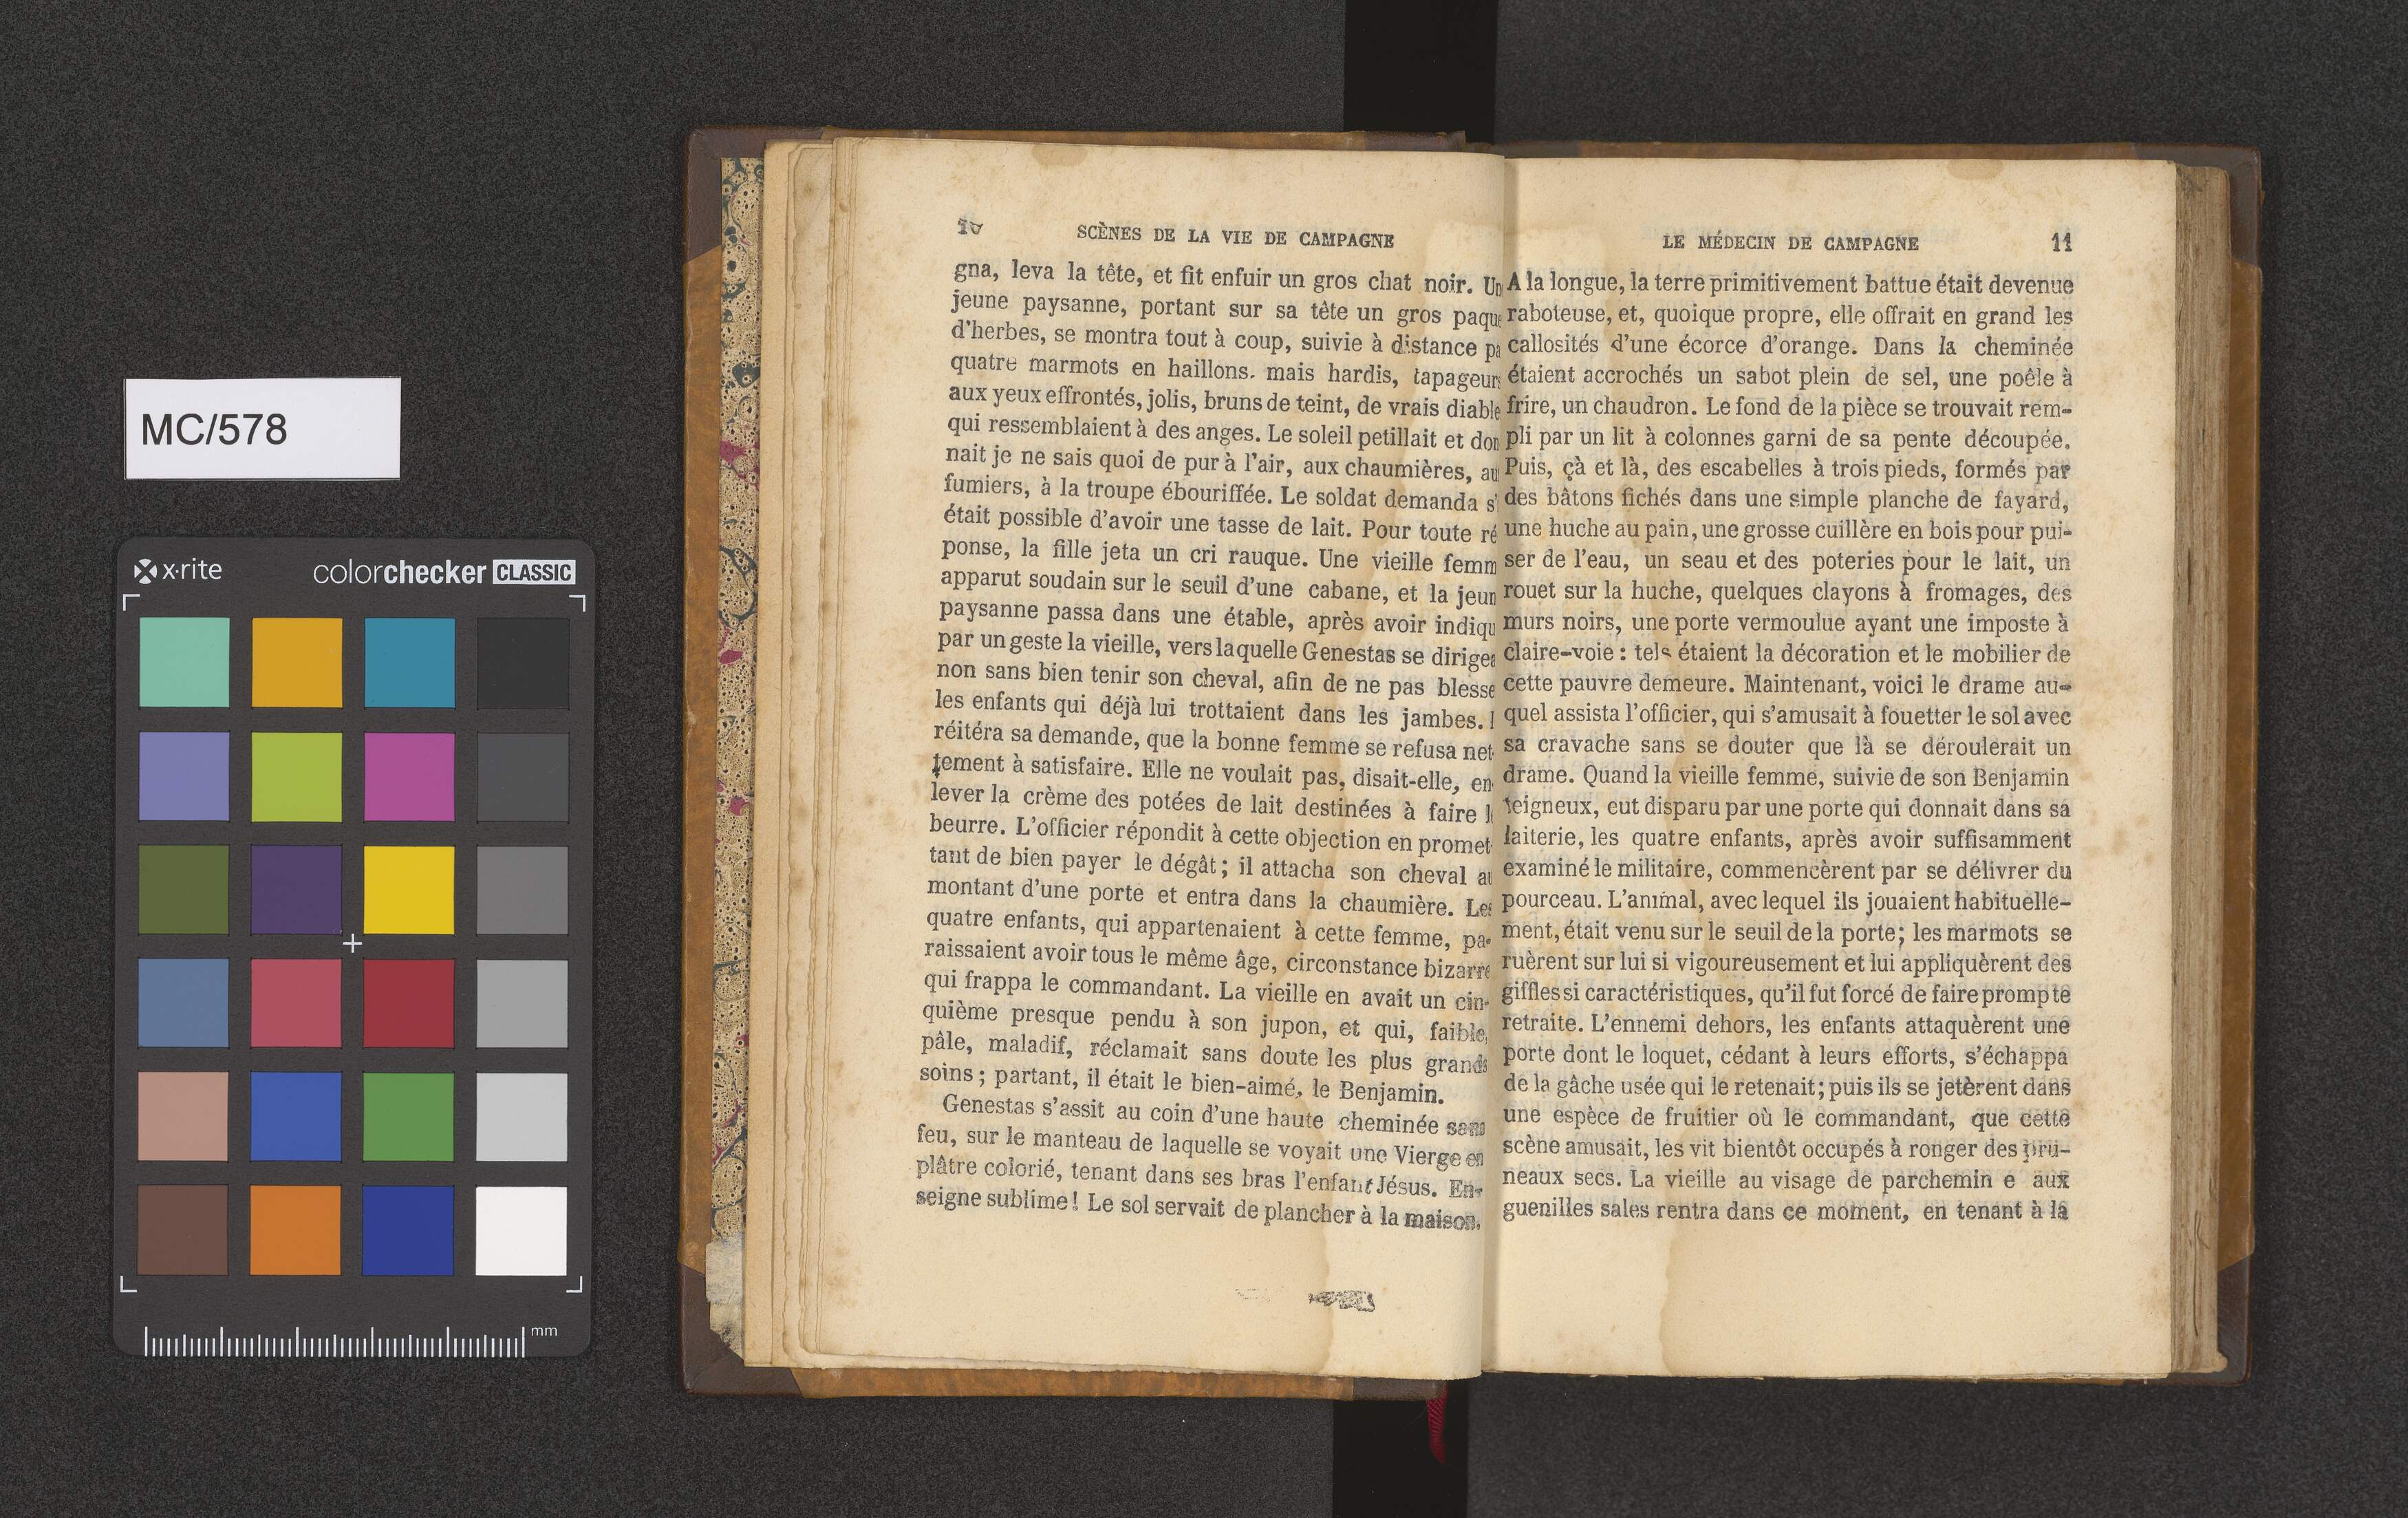 MC/578
x·rite
colorchecker CLASSIC
mm
SCÈNES DE LA VIE DE CAMPAGNE
gna, leva la tête, et fit enfuir un gros chat noir. Un
jeune paysanne, portant sur sa tête un gros paque
d'herbes, se montra tout à coup, suivie à distance pa
quatre marmots en haillons. mais hardis, tapageurs
aux yeux effrontés, jolis, bruns de teint, de vrais diable
qui ressemblaient à des anges. Le soleil petillait et don
nait je ne sais quoi de pur à l'air, aux chaumières, au
fumiers, à la troupe ébouriffée. Le soldat demanda s'
était possible d'avoir une tasse de lait. Pour toute ré
ponse, la fille jeta un cri rauque. Une vieille femm
apparut soudain sur le seuil d'une cabane, et la jeun
paysanne passa dans une étable, après avoir indiqu
par un geste la vieille, vers laquelle Genestas se dirigea
non sans bien tenir son cheval, afin de ne pas blesse
les enfants qui déjà lui trottaient dans les jambes. I
réitéra sa demande, que la bonne femme se refusa net-
tement à satisfaire. Elle ne voulait pas, disait-elle, en-
lever la crème des potées de lait destinées à faire l
beurre. L'officier répondit à cette objection en promet-
tant de bien payer le dégât; il attacha son cheval au
montant d'une porte et entra dans la chaumière. Les
quatre enfants, qui appartenaient à cette femme, pa-
raissaient avoir tous le même âge, circonstance bizarre
qui frappa le commandant. La vieille en avait un cin-
quième presque pendu à son jupon, et qui, faible,
pâle, maladif, réclamait sans doute les plus grands
soins; partant, il était le bien-aimé, le Benjamin.
Genestas s'assit au coin d'une haute cheminée sans
feu, sur le manteau de laquelle se voyait une Vierge en
plâtre colorié, tenant dans ses bras l'enfant Jésus. En-
seigne sublime! Le sol servait de plancher à la maison.
LE MÉDECIN DE CAMPAGNE 11
A la longue, la terre primitivement battue était devenue
raboteuse, et, quoique propre, elle offrait en grand les
callosités d'une écorce d'orange. Dans la cheminée
étaient accrochés un sabot plein de sel, une poêle à
frire, un chaudron. Le fond de la pièce se trouvait rem-
pli par un lit à colonnes garni de sa pente découpée.
Puis, çà et là, des escabelles à trois pieds, formés par
des bâtons fichés dans une simple planche de fayard,
une huche au pain, une grosse cuillère en bois pour pui-
ser de l'eau, un seau et des poteries pour le lait, un
rouet sur la huche, quelques clayons à fromages, des
murs noirs, une porte vermoulue ayant une imposte à
claire-voie : tels étaient la décoration et le mobilier de
cette pauvre demeure. Maintenant, voici le drame au-
quel assista l'officier, qui s'amusait à fouetter le sol avec
sa cravache sans se douter que là se déroulerait un
drame. Quand la vieille femme, suivie de son Benjamin
teigneux, eut disparu par une porte qui donnait dans sa
laiterie, les quatre enfants, après avoir suffisamment
examiné le militaire, commencèrent par se délivrer du
pourceau. L'animal, avec lequel ils jouaient habituelle-
ment, était venu sur le seuil de la porte; les marmots se
ruèrent sur lui si vigoureusement et lui appliquèrent des
giffles si caractéristiques, qu'il fut forcé de faire prompte
retraite. L'ennemi dehors, les enfants attaquèrent une
porte dont le loquet, cédant à leurs efforts, s'échappa
de la gâche usée qui le retenait; puis ils se jetèrent dans
une espèce de fruitier où le commandant, que cette
scène amusait, les vit bientôt occupés à ronger des pru-
neaux secs. La vieille au visage de parchemin e aux
guenilles sales rentra dans ce moment, en tenant à la